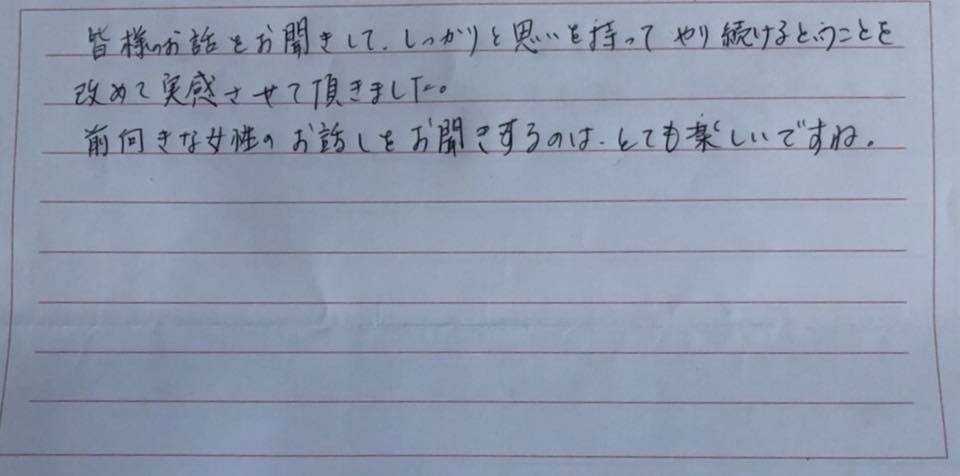 皆様のお話をお聞きして、しっかりと思いを持ってやり続けるということを
改めて実感させて頂きました。
前向きな女性のお話しをお聞きするのは、とても楽しいですね。